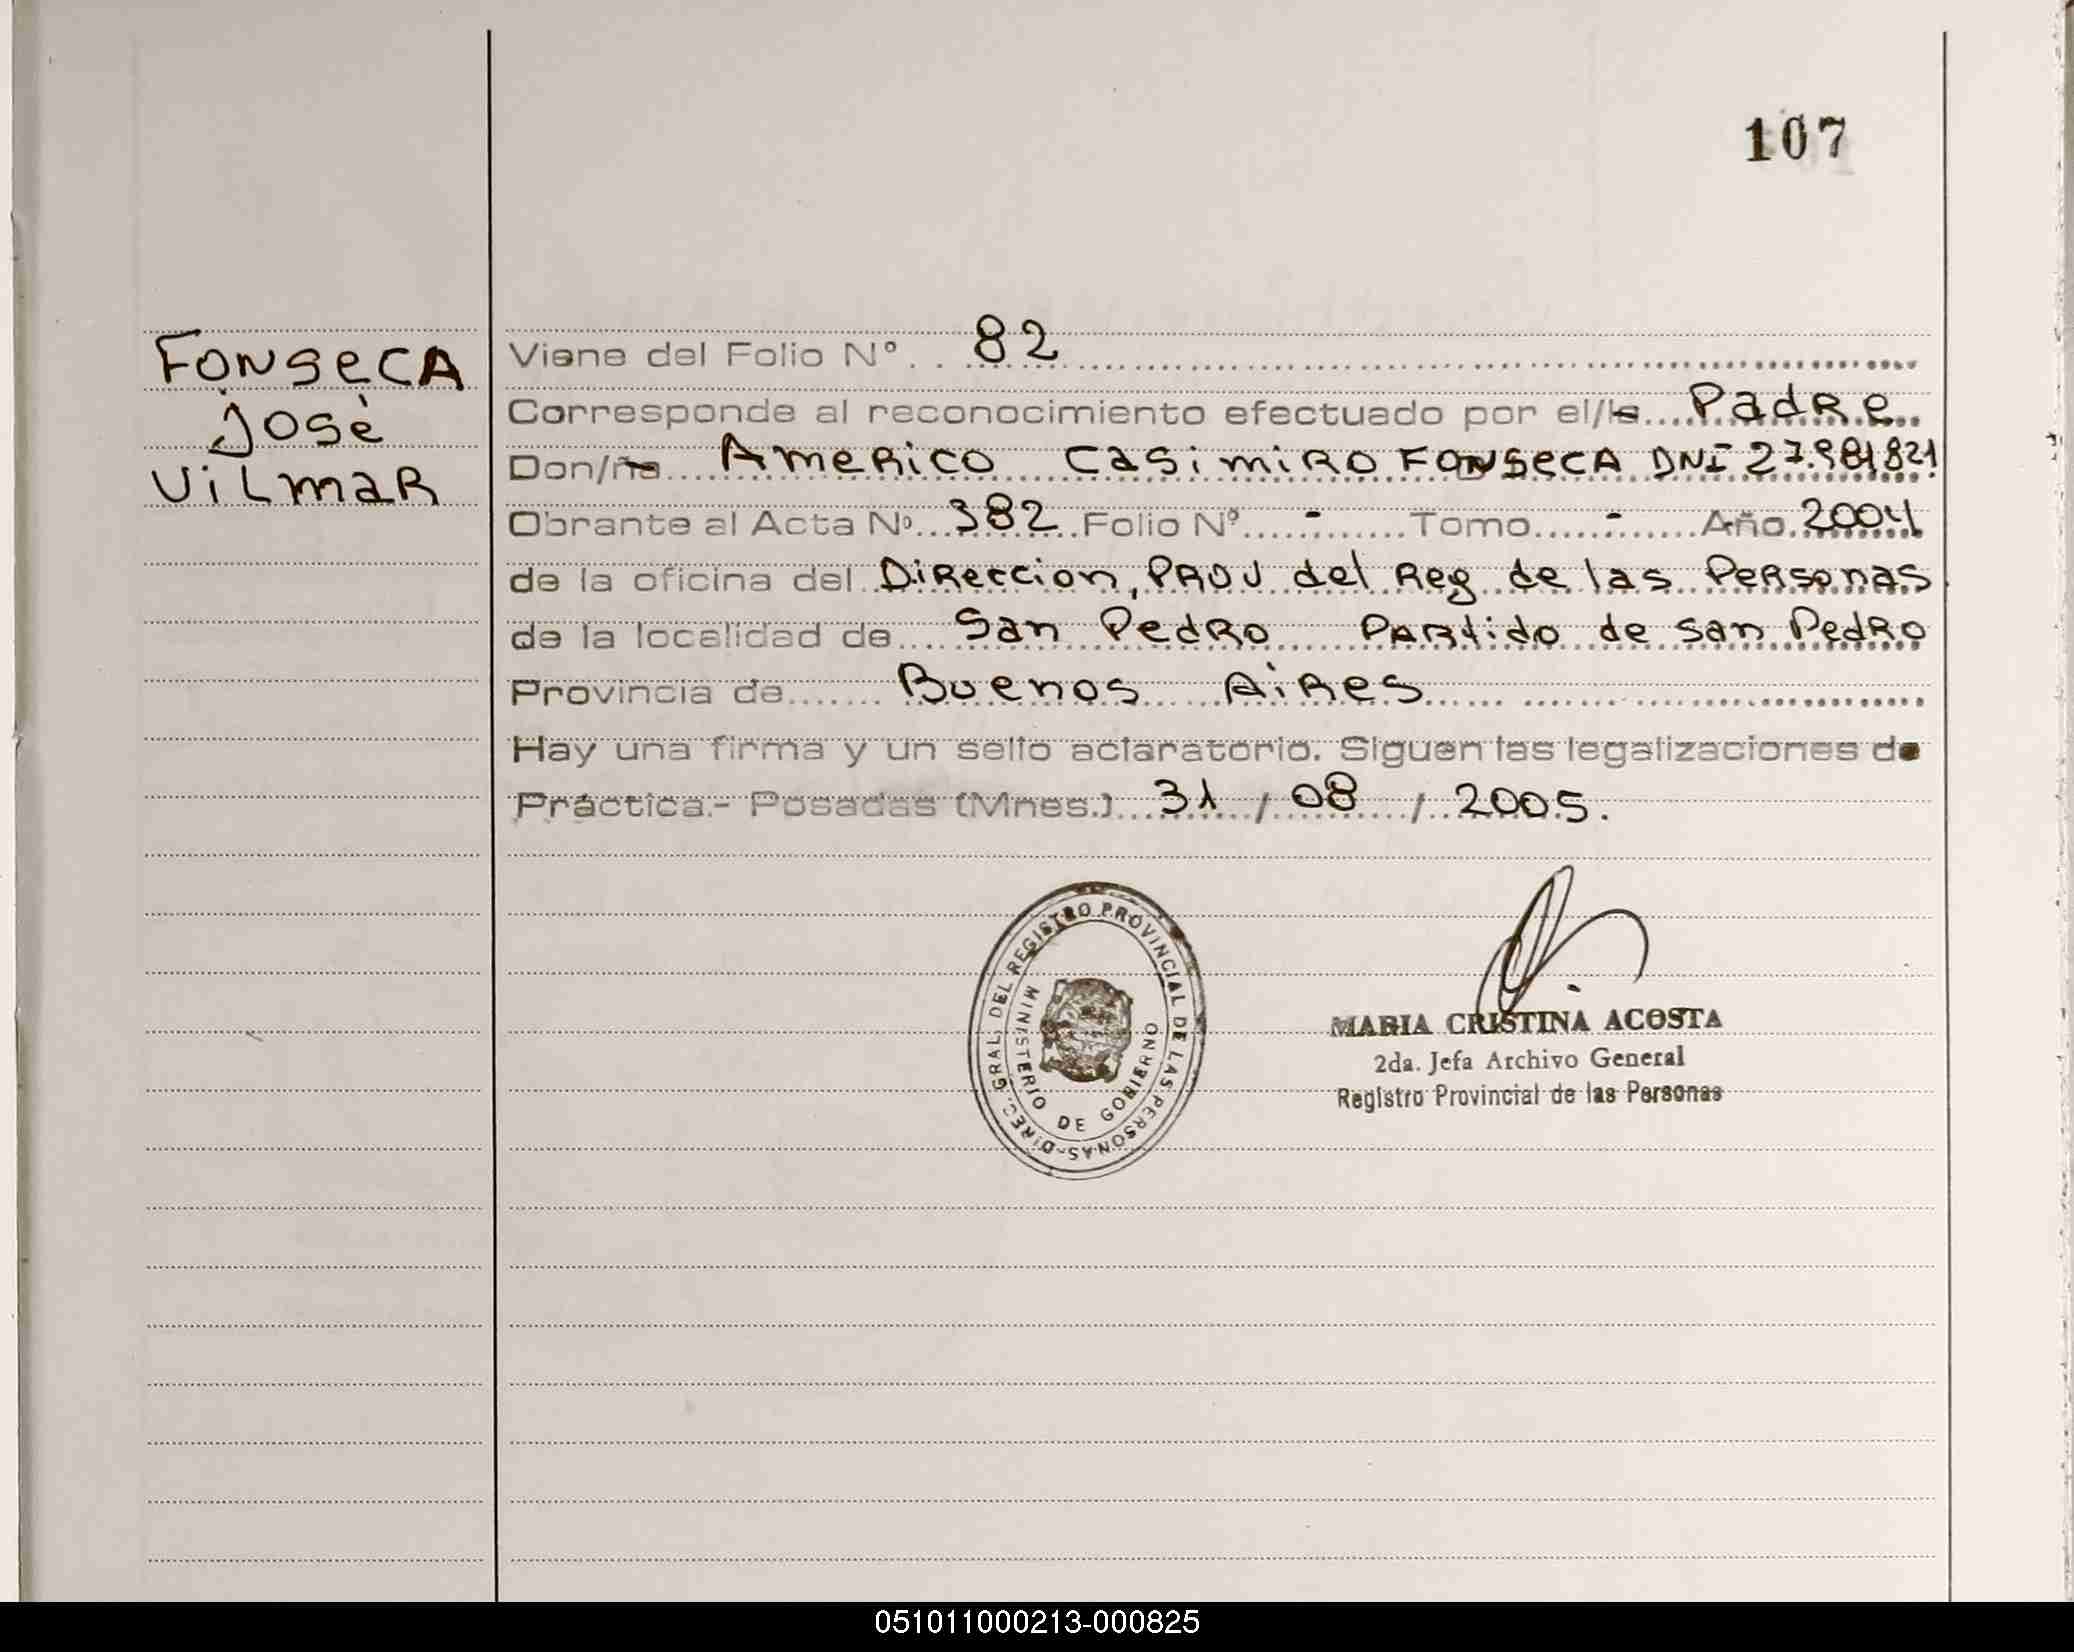 107
FONSECA
José
VILMAR
Viene del Folio Nº 82
Corresponde al reconocimiento efectuado por el/la Padre
Don/ña Americo Casimiro FONSECA DNI 27.981.821
Obrante al Acta Nº 382 Folio Nº - Tomo - Año 2004
de la oficina del Direccion, Prov del Reg de las Personas
de la localidad de San Pedro Partido de San Pedro
Provincia de Buenos Aires
Hay una firma y un sello aclaratorio. Siguen las legalizaciones de
Práctica.- Posadas (Mnes.) 31 / 08 / 2005.
DIREC. GRAL. DEL REGISTRO PROVINCIAL DE LAS PERSONAS-
MINISTERIO DE GOBIERNO
MARIA CRISTINA ACOSTA
2da. Jefa Archivo General
Registro Provincial de las Personas
051011000213-000825